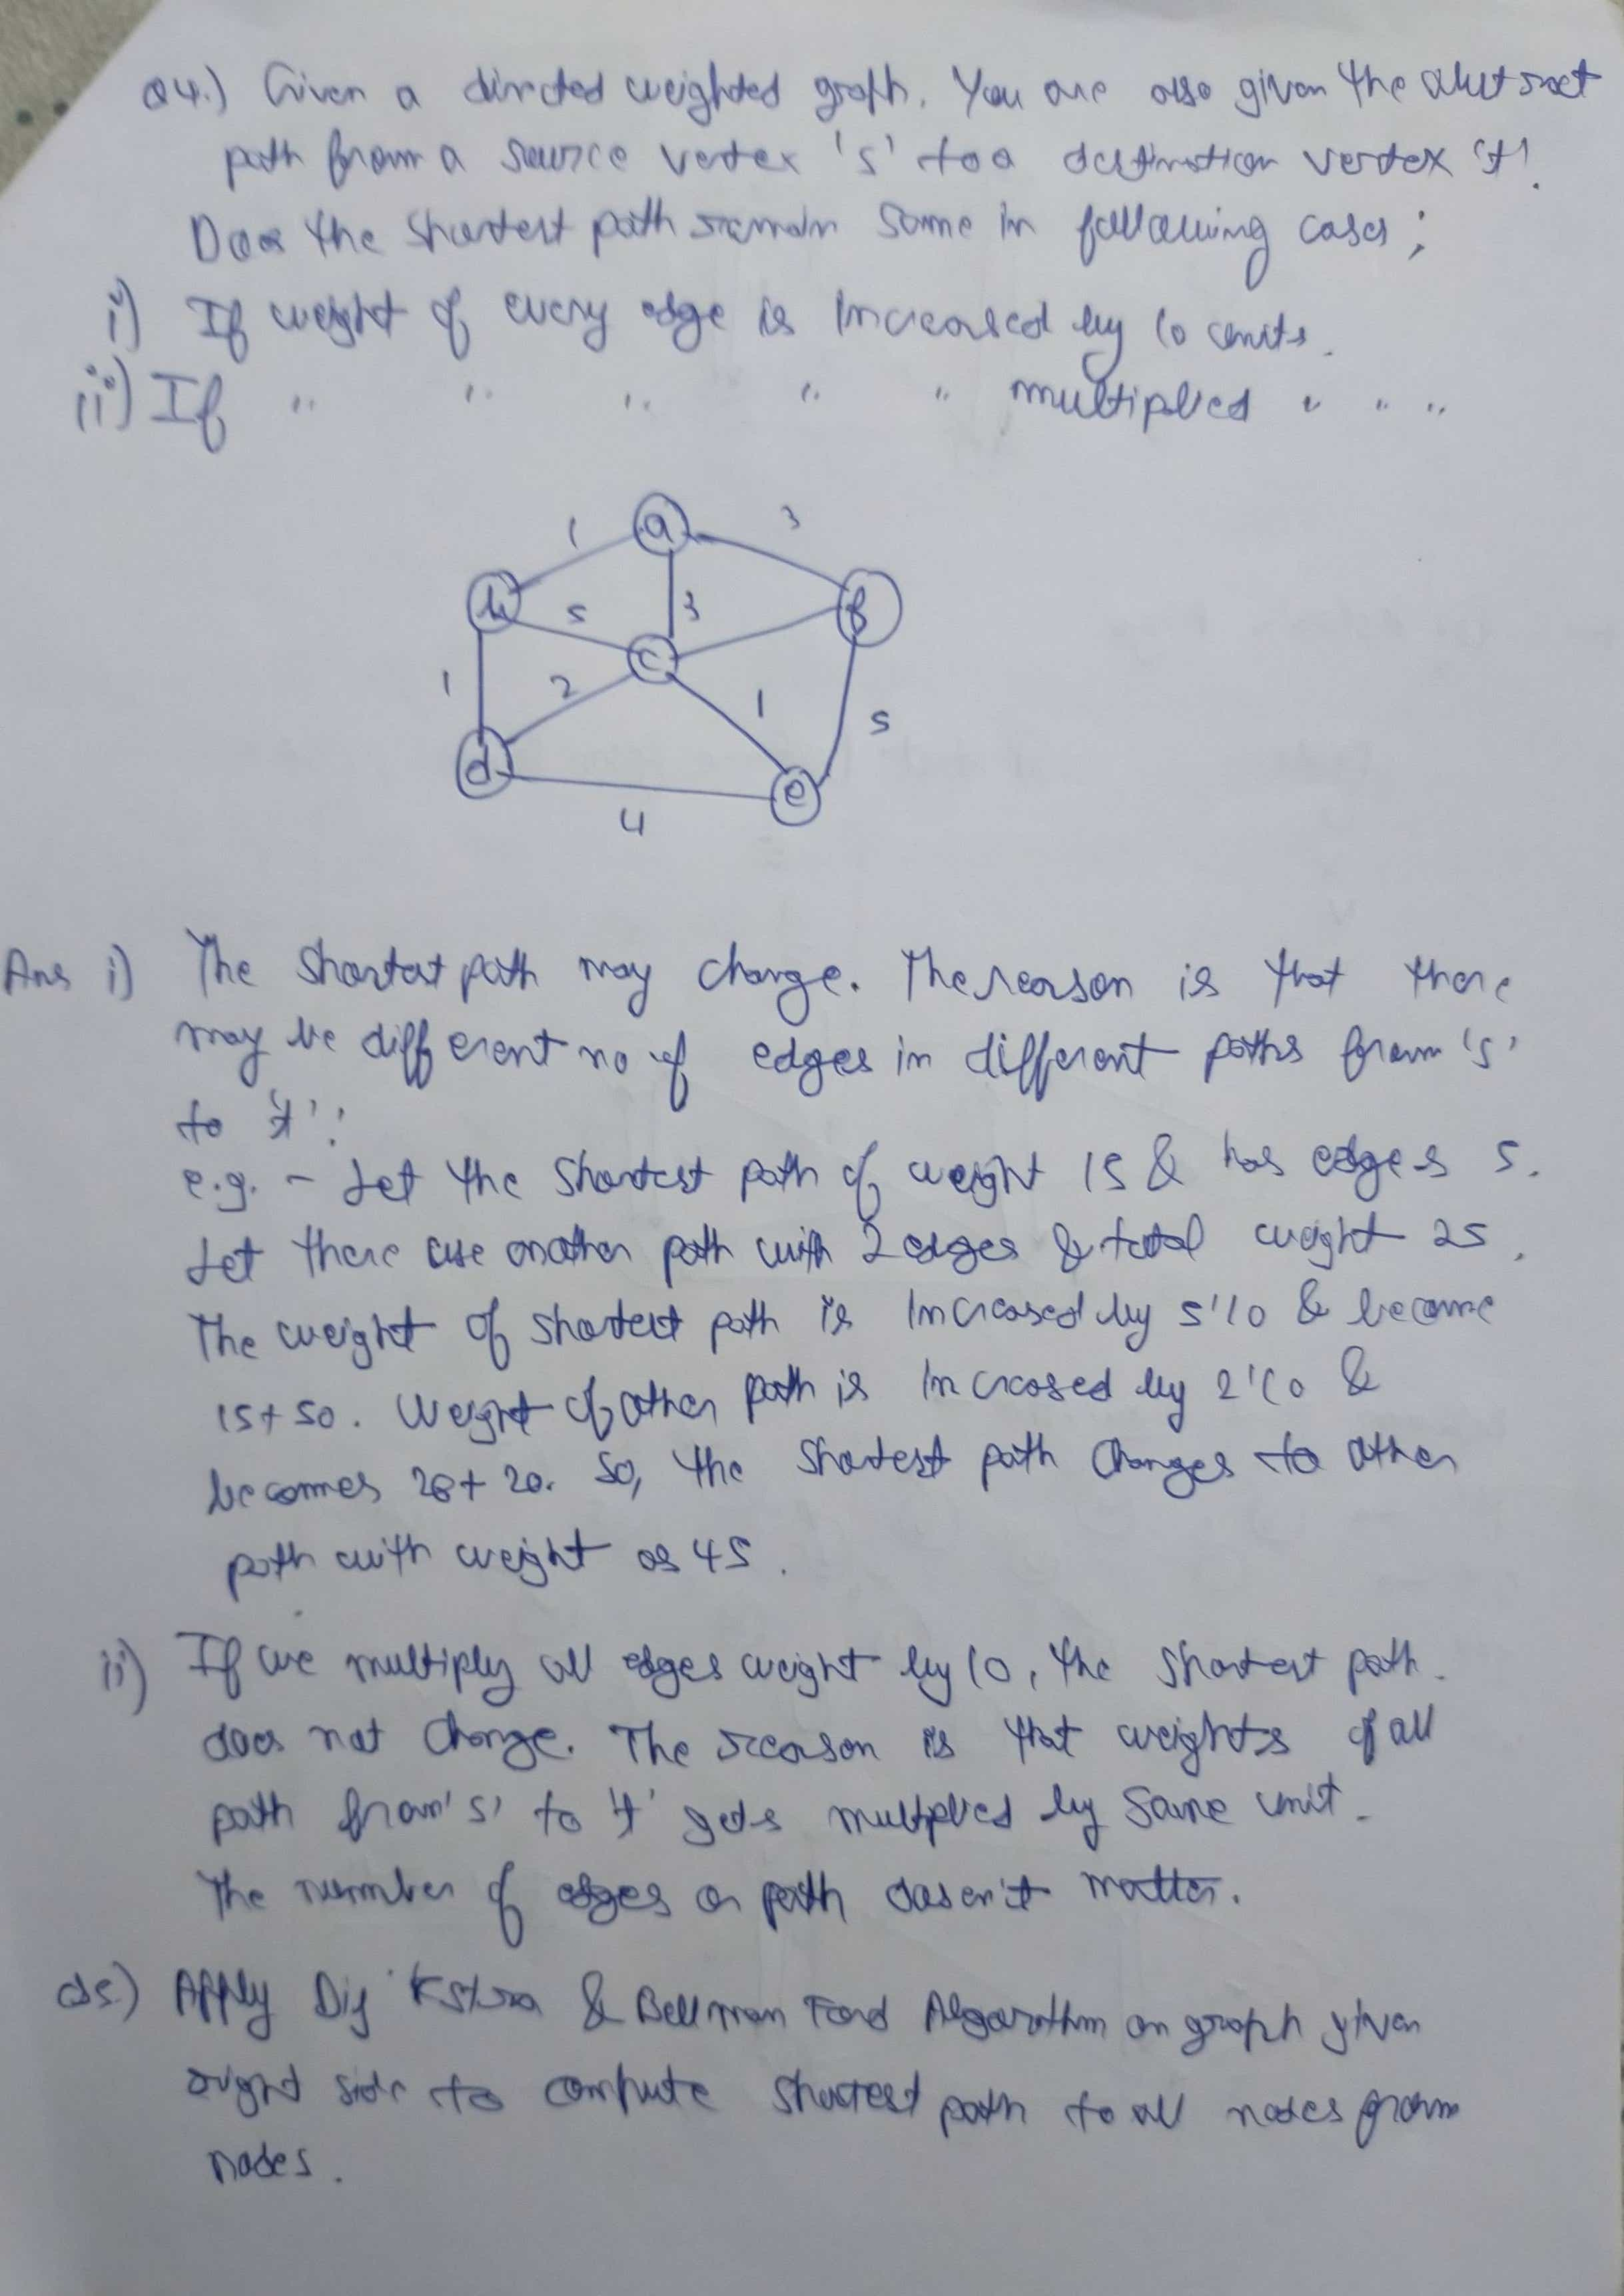 Q4.) Given a directed weighted graph. You are also given the shortest
path from a source vertex 's' to a destination vertex 't'.
Does the shortest path remain same in following cases;
i) If weight of every edge is increased by 10 units.
ii) If " " " " " multiplied " " "
1 a 3
b 5 3 f
c
1 2 1 5
d e
4
Ans i) The shortest path may change. The reason is that there
may be different no of edges in different paths from 's'
to 't'.
e.g. - Let the shortest path of weight 15 & has edges 5.
Let there are another path with 2 edges & total weight 25.
The weight of shortest path is increased by 5*10 & become
15+50. Weight of other path is increased by 2*10 &
becomes 25+20. So, the shortest path changes to other
path with weight as 45.
ii) If we multiply all edges weight by 10, the shortest path
does not change. The reason is that weights of all
path from 's' to 't' gets multiplied by same unit.
The number of edges on path doesn't matter.
Q5.) Apply Dijkstra & Bellman Ford Algorithm on graph given
right side to compute shortest path to all nodes from
nodes.